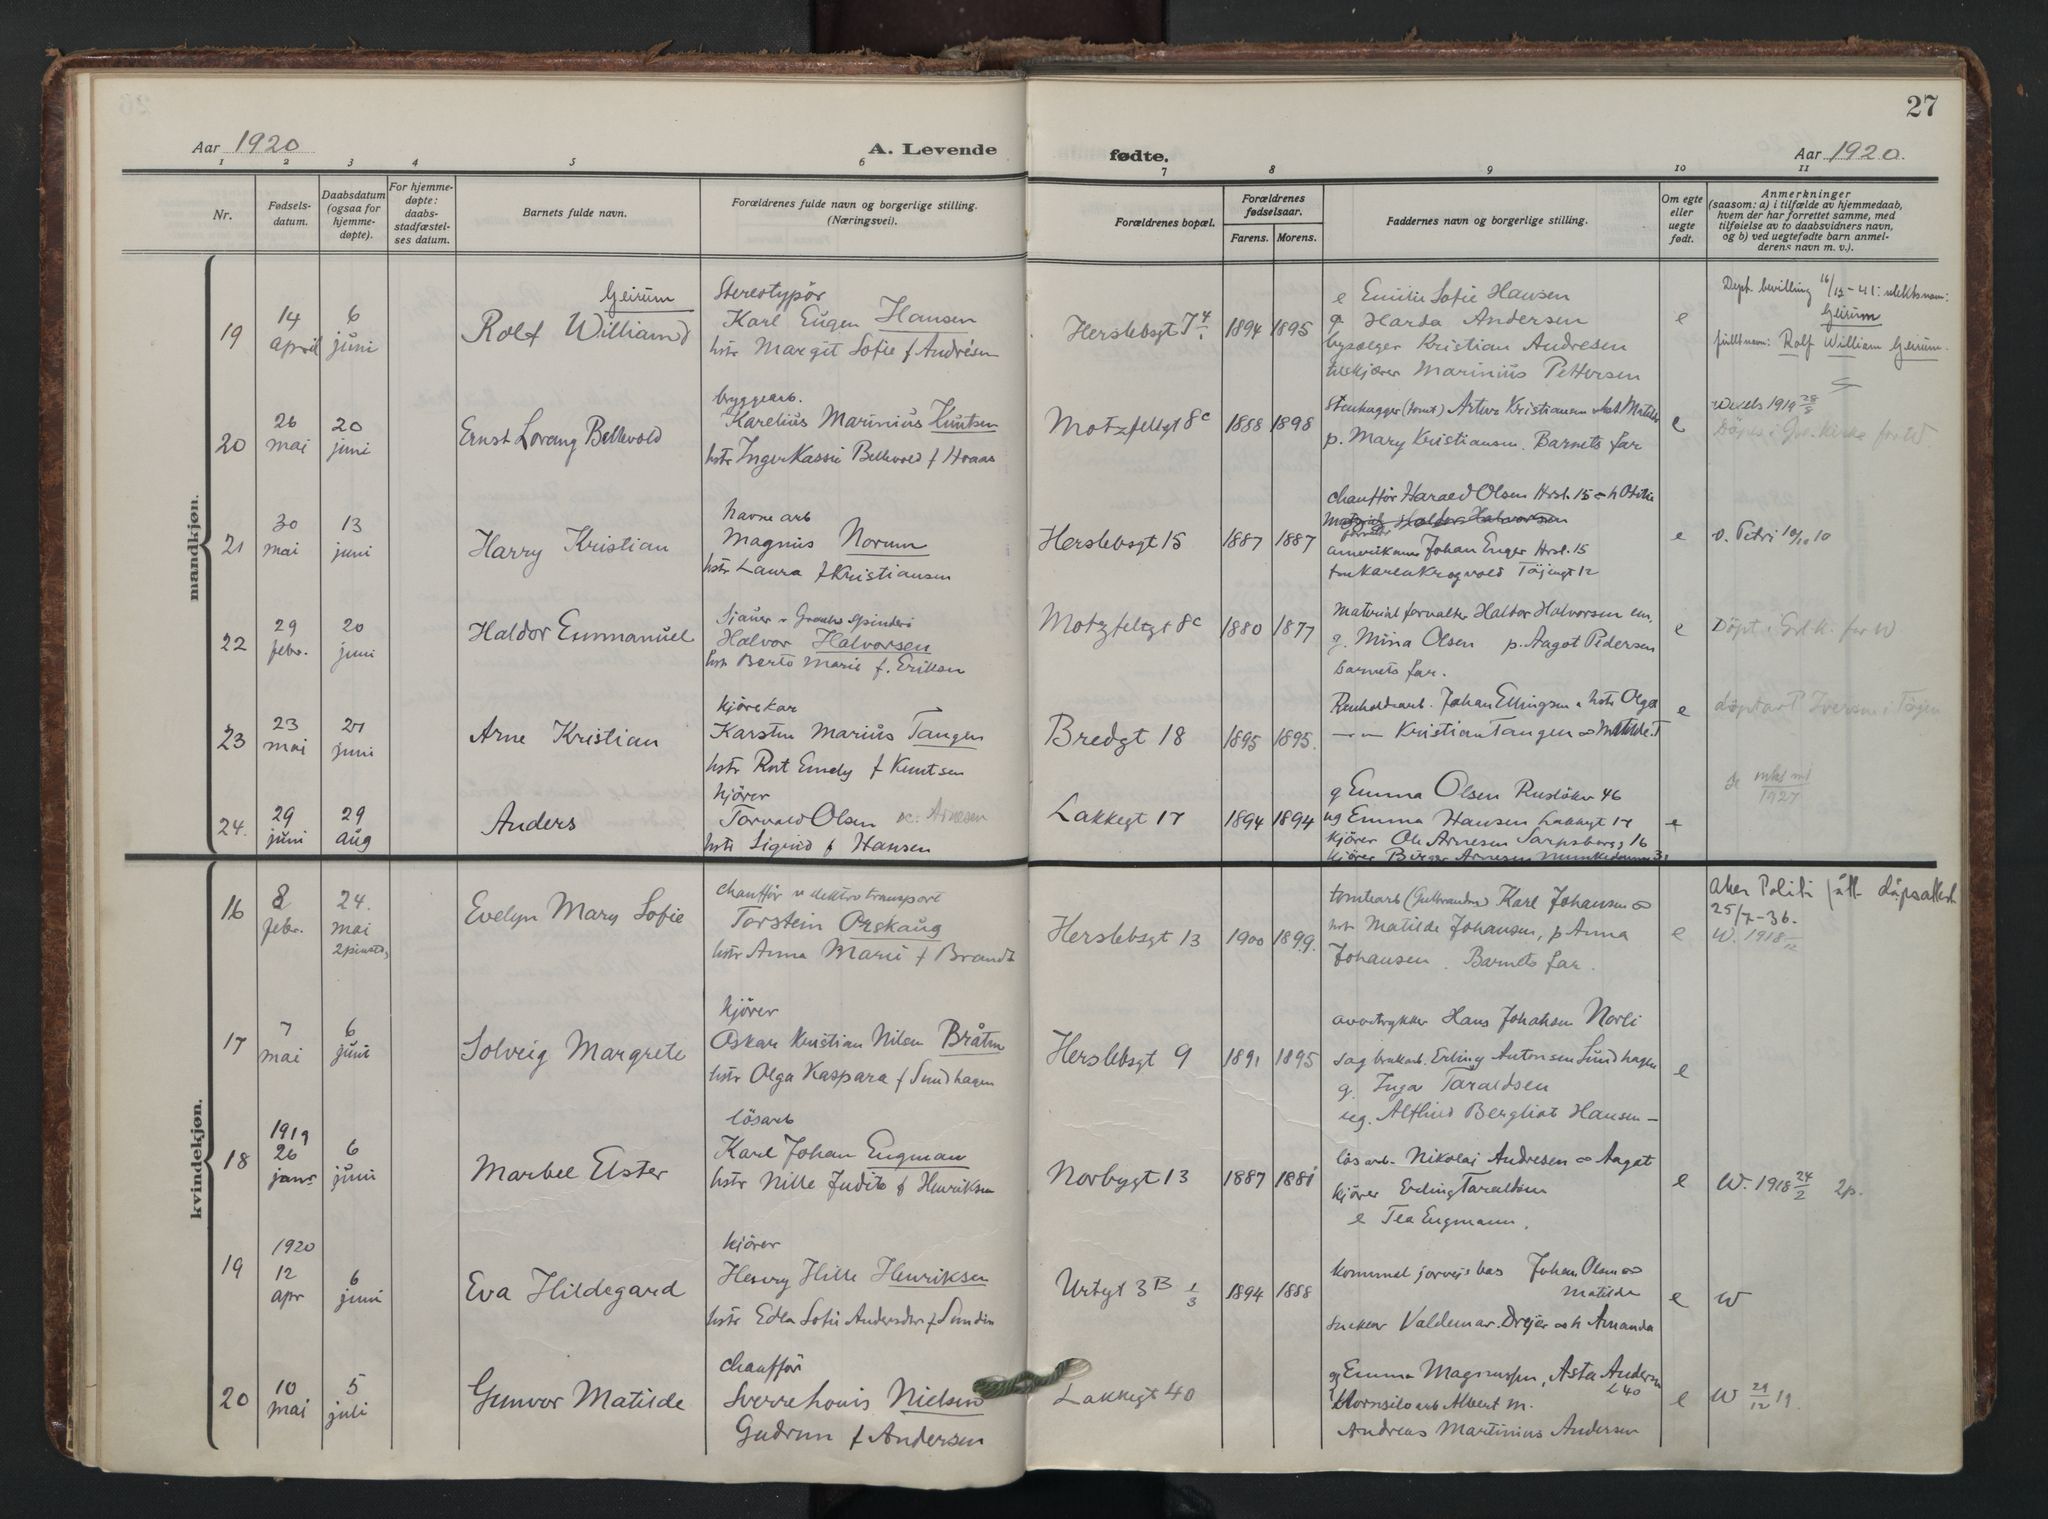 27
Aar 1920
A. Levende
fødte.
Aar 1920.
1 2 3 4 5 6 7 8 9 10 11
Nr.
Fødsels-
datum.
Daabsdatum
(ogsaa for
hjemme-
døpte).
For hjemme-
døpte:
daabs-
stadfæstel-
ses datum.
Barnets fulde navn.
Forældrenes fulde navn og borgerlige stilling.
(Næringsvei).
Forældrenes bopæl.
Forældrenes
fødselsaar.
Farens. Morens.
Faddernes navn og borgerlige stilling.
Om egte
eller
uegte
født.
Anmerkninger
(saasom: a) i tilfælde av hjemmedaab,
hvem der har forrettet samme, med
tilføielse av to daabsvidners navn,
og b) ved uegtefødte barn anmel-
derens navn m. v.).
mandkjøn.
19
14
april
6
juni
Geirum
Rolf William
Stereotypör
Karl Eugen Hansen
hstr Margit Sofie f Andrésen
Herslebsgt 7
1894 1895
e Emilie Sofie Hansen
g Harda Andersen
bysælger Kristian Andresen
Marinius Pettersen
e
Dept. bevilling 16/12-41: slektsnam:
Geirum
fullt navn: Rolf William Geirum.
20
26
mai
20
juni
Ernst Lorang Bellevold
bryggearb.
Karelius Marinius Knutsen
hstr Inger Kassie Bellevold f Haaas
Motzfeltgt 8c
1888 1898
Stenhugger (tomt) Artur Kristiansen
p. Mary Kristiansen. Barnets far
e
1919 28/8
Döpt i Grl. kirke for W
21
30
mai
13
juni
Harry Kristian
havnearb
Magnus Norum
hstr Laura f Kristiansen
Herslebsgt 15
1887 1887
chauffør Harald Olsen Hrsl. 15
Haldor Halvorsen
Johan Enger Hrsl. 15
Karen Krogvold Töjengt 12
e
v. Petri 10/10 10
22
29
febr.
20
juni
Haldor Emmanuel
Sjauer v Graahs Spinderi
Halvor Halvorsen
hstr Berte Marie f. Eriksen
Motzfeltgt 8c
1880 1877
Materialforvalter Haldor Halvorsen em,
g. Mina Olsen p. Aagot Pedersen
Barnets far.
e
Döpt i Grl. K. for W
23
23
mai
juni
Arne Kristian
kjörekar
Karsten Marius Tangen
hstr Rut Emely f Knutsen
Bredgt 18
1895 1895.
Renholdsarb. Johan Ellingsen & hstr Olga
— " — Kristian Tangen & Matilde T
e
döpt av P Iversen i Töyen
24.
29
juni
29
aug
Anders
kjörer
Torvald Olsen sc. Arnesen
hstr Sigrid f Hansen
Lakkegt 17
1894 1894
g Emma Olsen Ruslökv 46
ug Emma Hansen Lakkegt 17
kjörer Ole Arnesen Sarpsborgg 16
kjörer Birger Arnesen
e
1927
kvindekjøn.
16
8
febr.
24.
mai
2 pinsed.
Evelyn Mary Sofie
chauffør v elektrotransport
Torstein Orskaug
hstr Anna Marie f Brandt
Herslebsgt 13
1900 1899.
tomtearb (Gulbrandsen) Karl Johansen &
hstr Matilde Johansen, p Anna
Johansen. Barnets far.
e
Aker Politi fått döpsattest
25/7-36.
W. 1918
17
7
mai
6
juni
Solveig Margrete
kjörer
Oskar Kristian Nilsen Bråten
hstr Olga Kaspara f Sundhagen
Herslebsgt 9
1891 1895
avvtrykker Hans Johansen Norli
sagbrukarb. Erling Antonsen Sundhagen
g. Inga Taraldsen
ug. Alfhild Bergliot Hansen —
e
18
1919
26
janr
6
juni
Marbel Elster
lösarb
Karl Johan Engman
hstr Nille Judit f Henriksen
Norbygt 13
1887 1881
lösarb. Nikolai Andresen & Aagot
kjörer Erling Taraldsen
e Tea Engmann.
e
W. 1918 24/2 2p.
19
1920
12
apr
6
juni
Eva Hildegard
kjörer
Henry Hille Henriksen
hstr Edla Sofie Andersdtr f Sundin
Urtegt 3B 1/3
1894 1888
kommunal Johan Olsen &
Matilde
Valdemar Drejer & h Amanda
e
W
20
10
mai
5
juli
Gunvor Matilde
chauffør
Sverre Louis Nielsen
Gudrun f Andersen
Lakkegt 40
g Emma Magnussen, Asta Andersen
L 40
Kornsiloarb Albert M.
Andreas Martinius Andersen
e
W 29/12 19.